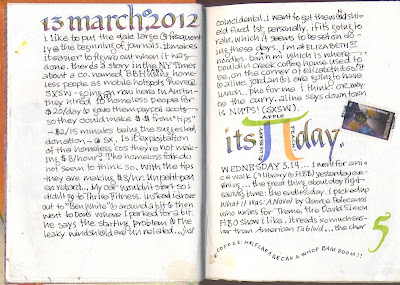 13 march. 2012
i like to put the date large & frequent
ly @ the beginning of journals. it makes
it easier to figure out when it was
done. there's a story in the NY Times
about a co. named BBH using home-
less people as mobile hotspots. There's
SXSW - going on now here in Austin -
they hired 10 homeless people for
$20/day & gave them paypal accts -
so they could make $$ from "tips"
- $2/15 minutes being the suggested
donation - @ SX. Is it exploitation
of the homeless cos they're not making
$8/hour? The homeless folk do
not seem to think so. With the tips
they are making $$/hr. Un petit pen
on reload... My car wouldn't start so I
didn't go to Thrive Fitness. Instead I drove
out to "Ben White" & around a bit & then
went to Don's where I parked for a bit.
he says the starting problem & the
leaky windshield are un related... just
coincidental. i want to get the windshi
eld fixed 1st, personally, if it's going to
rain, which it seems to be often do-
ing these days. I'm at ELIZABETH ST
which is where
Bouldin Creek coffee house used to
be, on the corner of elizabeth & so. 1st
& aline are going to have
lunch. pho for me i think or maybe
the curry. aline says down town
is NUTS! (SXSW)
APPLE
its π day.
WEDNESDAY 3.14... I went for a ni-
ce walk (library & HEB) yesterday eve-
ning... the great thing about daylight
saving time: the endless day. I picked up
What it Was: A Novel by George Pelecanos
who writes for Treme, the David Simon
HBO show I like. it reads so much eas-
ier than American Tabloid... the char
5
COFFEE: HALFCAFF DECAF A WHOP BAM BOOM!!